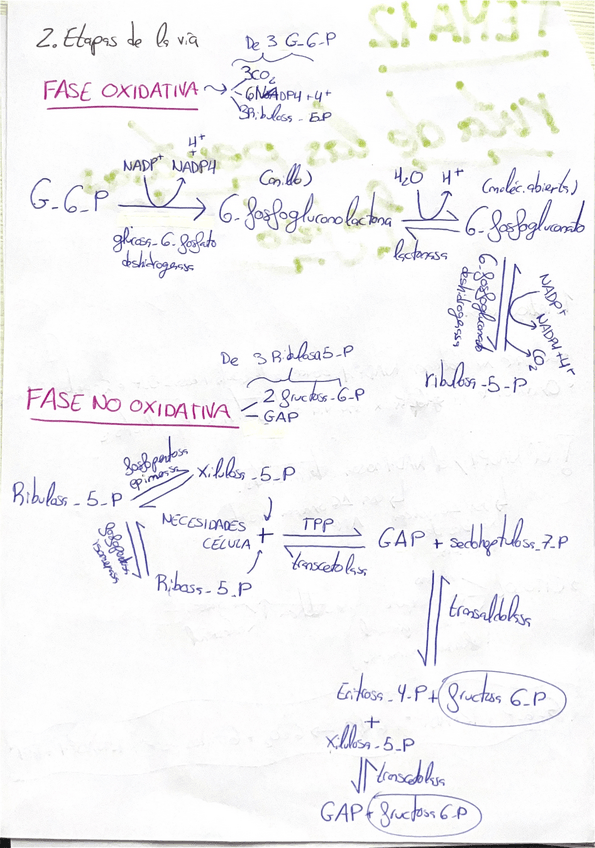 2. Etapas de la vía
De 3 G-6-P
FASE OXIDATIVA
3CO2
6NADPH + H+
3Ribulosa-5P
G-6-P
NADP+
NADPH
H+
glucosa-6-fosfato
deshidrogenasa
(anillo)
6-fosfogluconolactona
H2O
H+
lactonasa
(moléc. abierta)
6-fosfogluconato
6-fosfogluconato
deshidrogenasa
NADP+
NADPH+H+
CO2
ribulosa-5-P
De 3 Ribulosa5-P
FASE NO OXIDATIVA
2 fructosa-6-P
GAP
Ribulosa-5-P
fosfopentosa
epimerasa
xilulosa-5-P
fosfopentosa
isomerasa
Ribosa-5-P
NECESIDADES
CÉLULA
+
TPP
transcetolasa
GAP + sedoheptulosa-7-P
transaldolasa
Eritrosa-4-P + fructosa 6-P
+
xilulosa-5-P
transcetolasa
GAP + fructosa 6-P